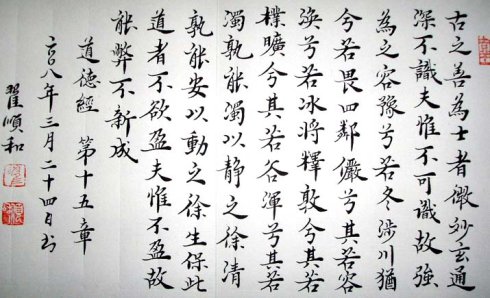 古之善為士者微妙玄通
深不識夫惟不可識故強
為之容豫兮若冬涉川猶
兮若畏四鄰儼兮其若容
渙兮若冰將釋敦兮其若
樸曠兮其若谷渾兮其若
濁孰能濁以静之徐清
孰能安以動之徐生保此
道者不欲盈夫惟不盈故
能弊不新成
道德經 第十五章
二〇〇八年三月二十四日书
翟順和